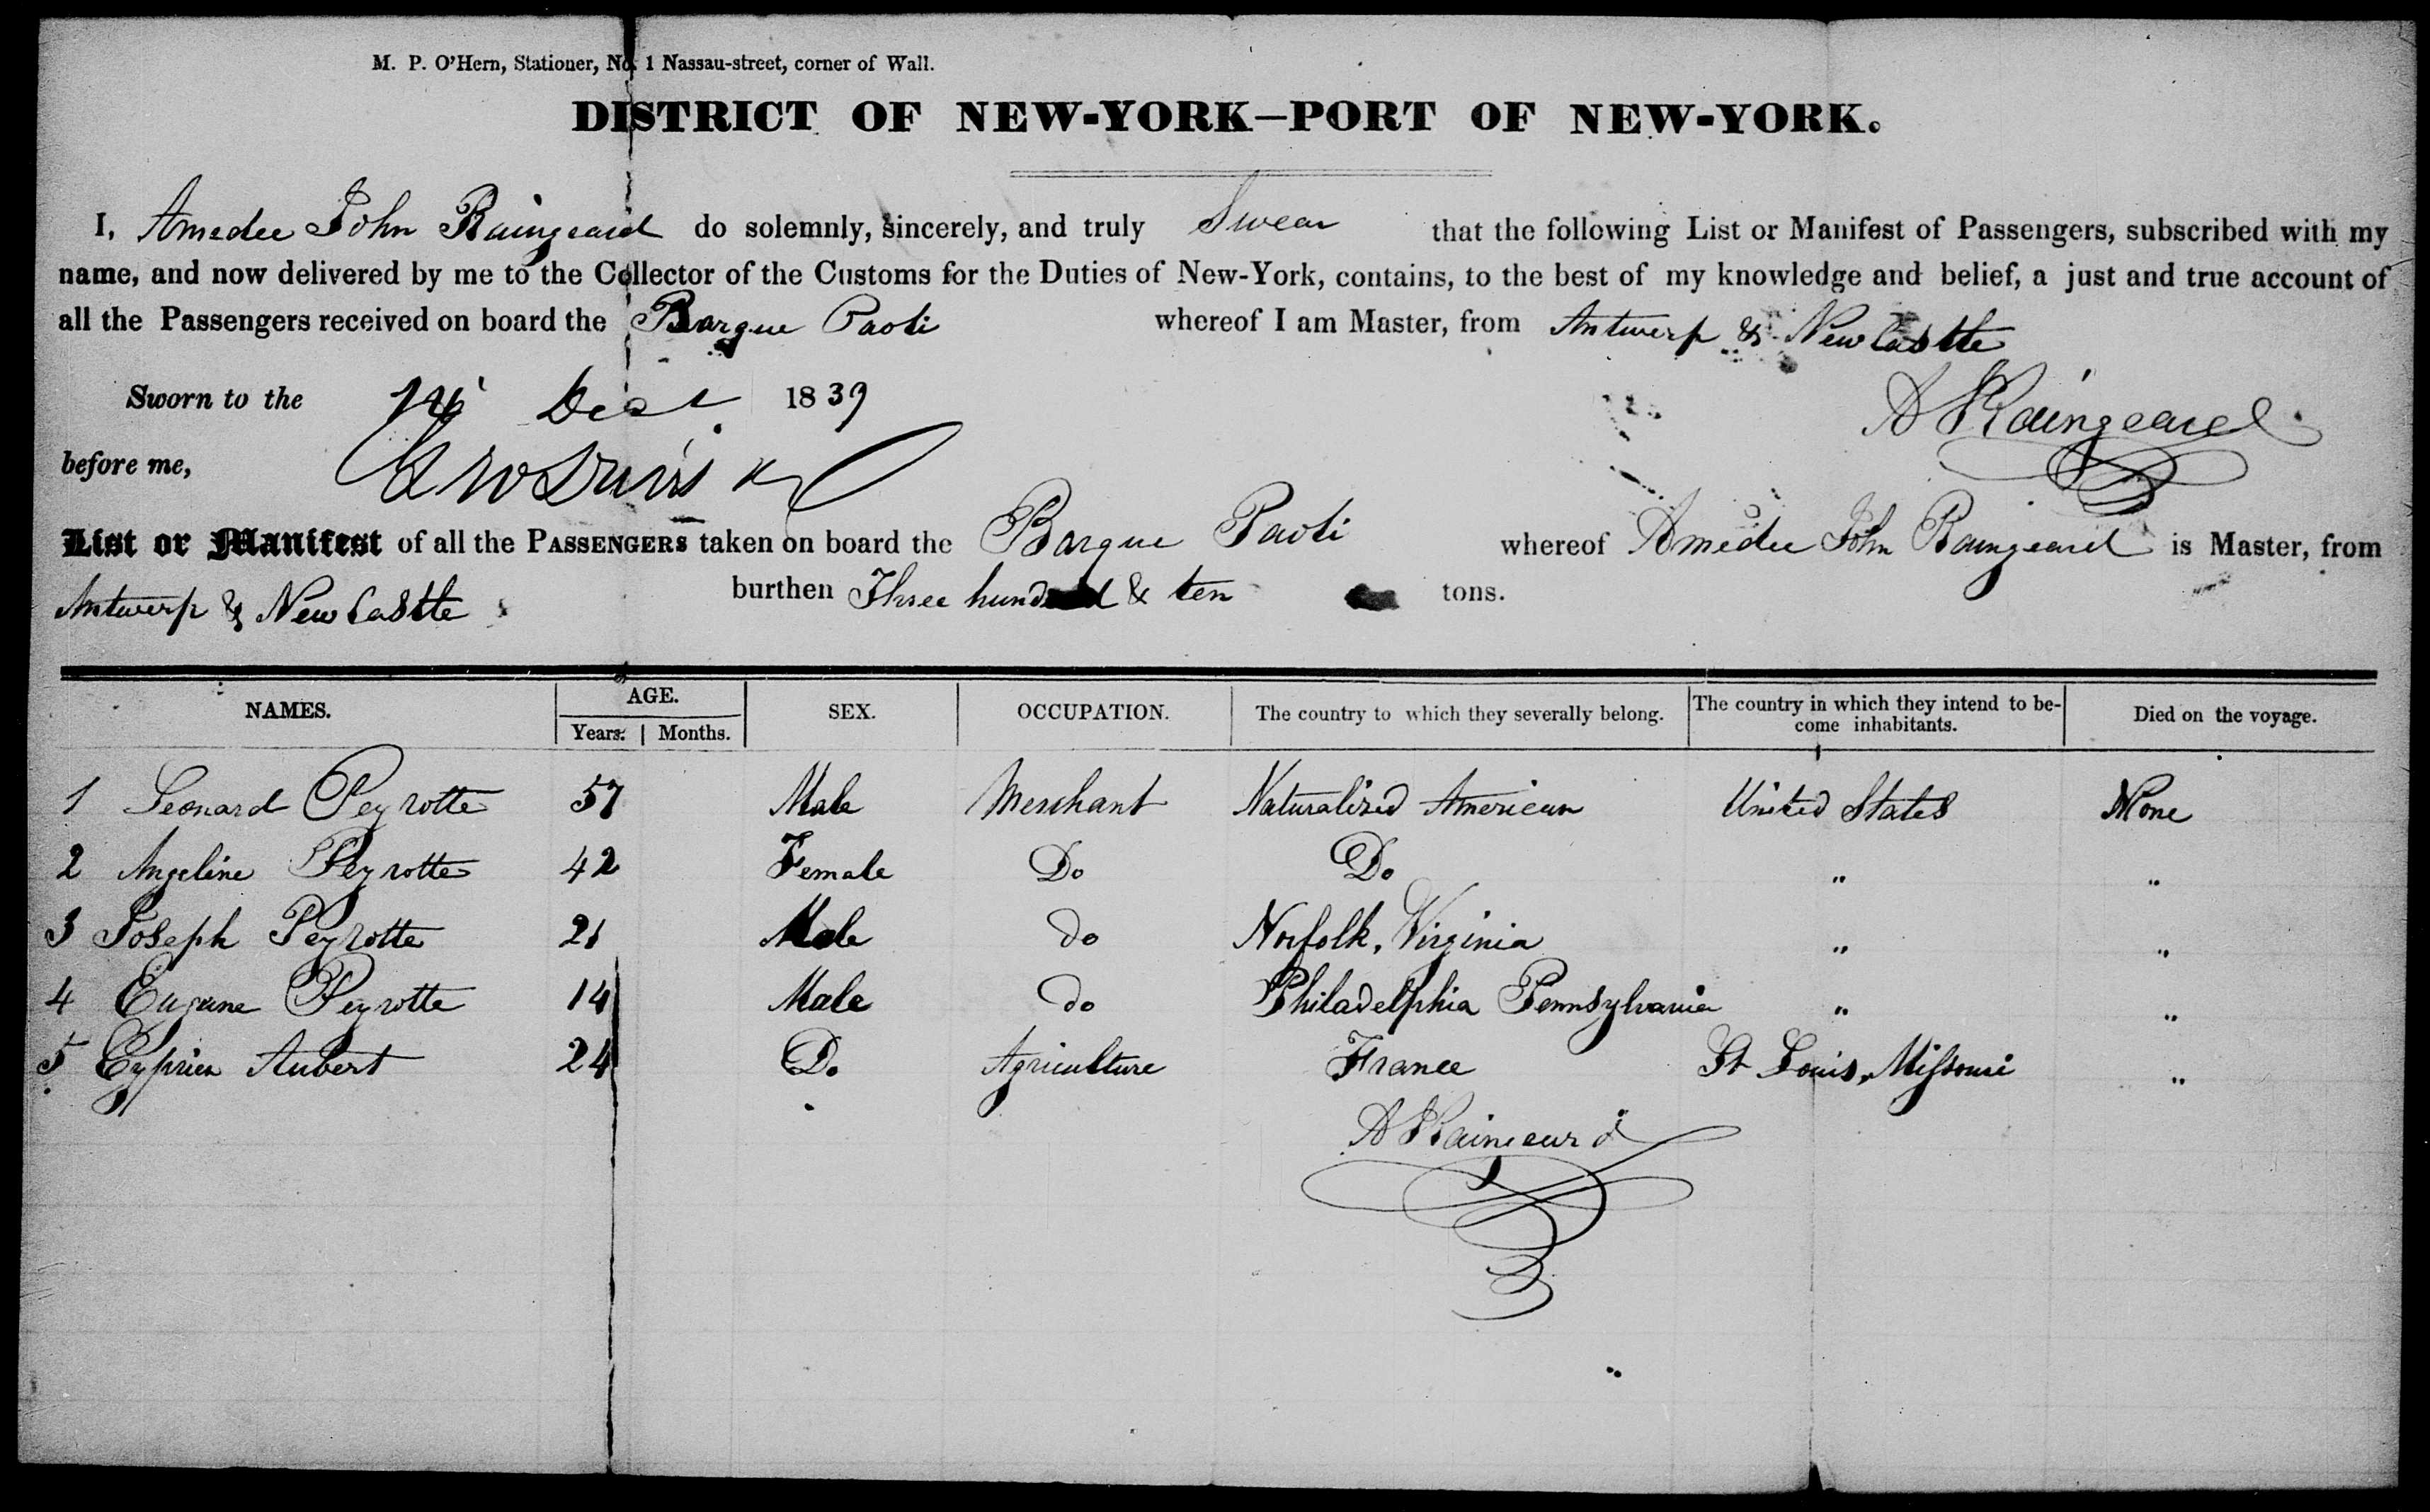 M. P. O'Hern, Stationer, No. 1 Nassau-street, corner of Wall.
DISTRICT OF NEW-YORK—PORT OF NEW-YORK.
I, Amedee John Raingeard do solemnly, sincerely, and truly Swear that the following List or Manifest of Passengers, subscribed with my
name, and now delivered by me to the Collector of the Customs for the Duties of New-York, contains, to the best of my knowledge and belief, a just and true account of
all the Passengers received on board the Barque Paoli whereof I am Master, from Antwerp & New Castle
Sworn to the Decr 1839
A Raingeard
before me,
List or Manifest of all the PASSENGERS taken on board the Barque Paoli whereof Amedee John Raingeard is Master, from
Antwerp & New Castle burthen Three hundred & ten tons.
NAMES. AGE. SEX. OCCUPATION. The country to which they severally belong. The country in which they intend to be-come inhabitants. Died on the voyage.
Years. Months.
1 Leonard Peyrotte 57 Male Merchant Naturalized American United States None
2 Angeline Peyrotte 42 Female Do Do " "
3 Joseph Peyrotte 21 Male do Norfolk, Virginia " "
4 Eugene Peyrotte 14 Male do Philadelphia Pennsylvania " "
5 Cyprien Aubert 24 Do Agriculture France St Louis, Missouri "
A Raingeard